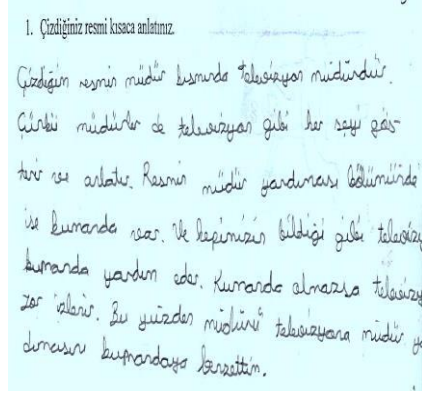 1. Çizdiğiniz resmi kısaca anlatınız.
Çizdiğim resmin müdür kısmında televizyon müdürdür.
Çünkü müdürler de televizyon gibi her şeyi gös-
terir ve anlatır. Resmin müdür yardımcısı bölümünde
ise kumanda var. Ve hepimizin bildiği gibi televizy
kumanda yardım eder. Kumanda olmazsa televizy
zor izlenir. Bu yüzden müdürü televizyona müdür ya
dımcısını kumandaya benzettim.